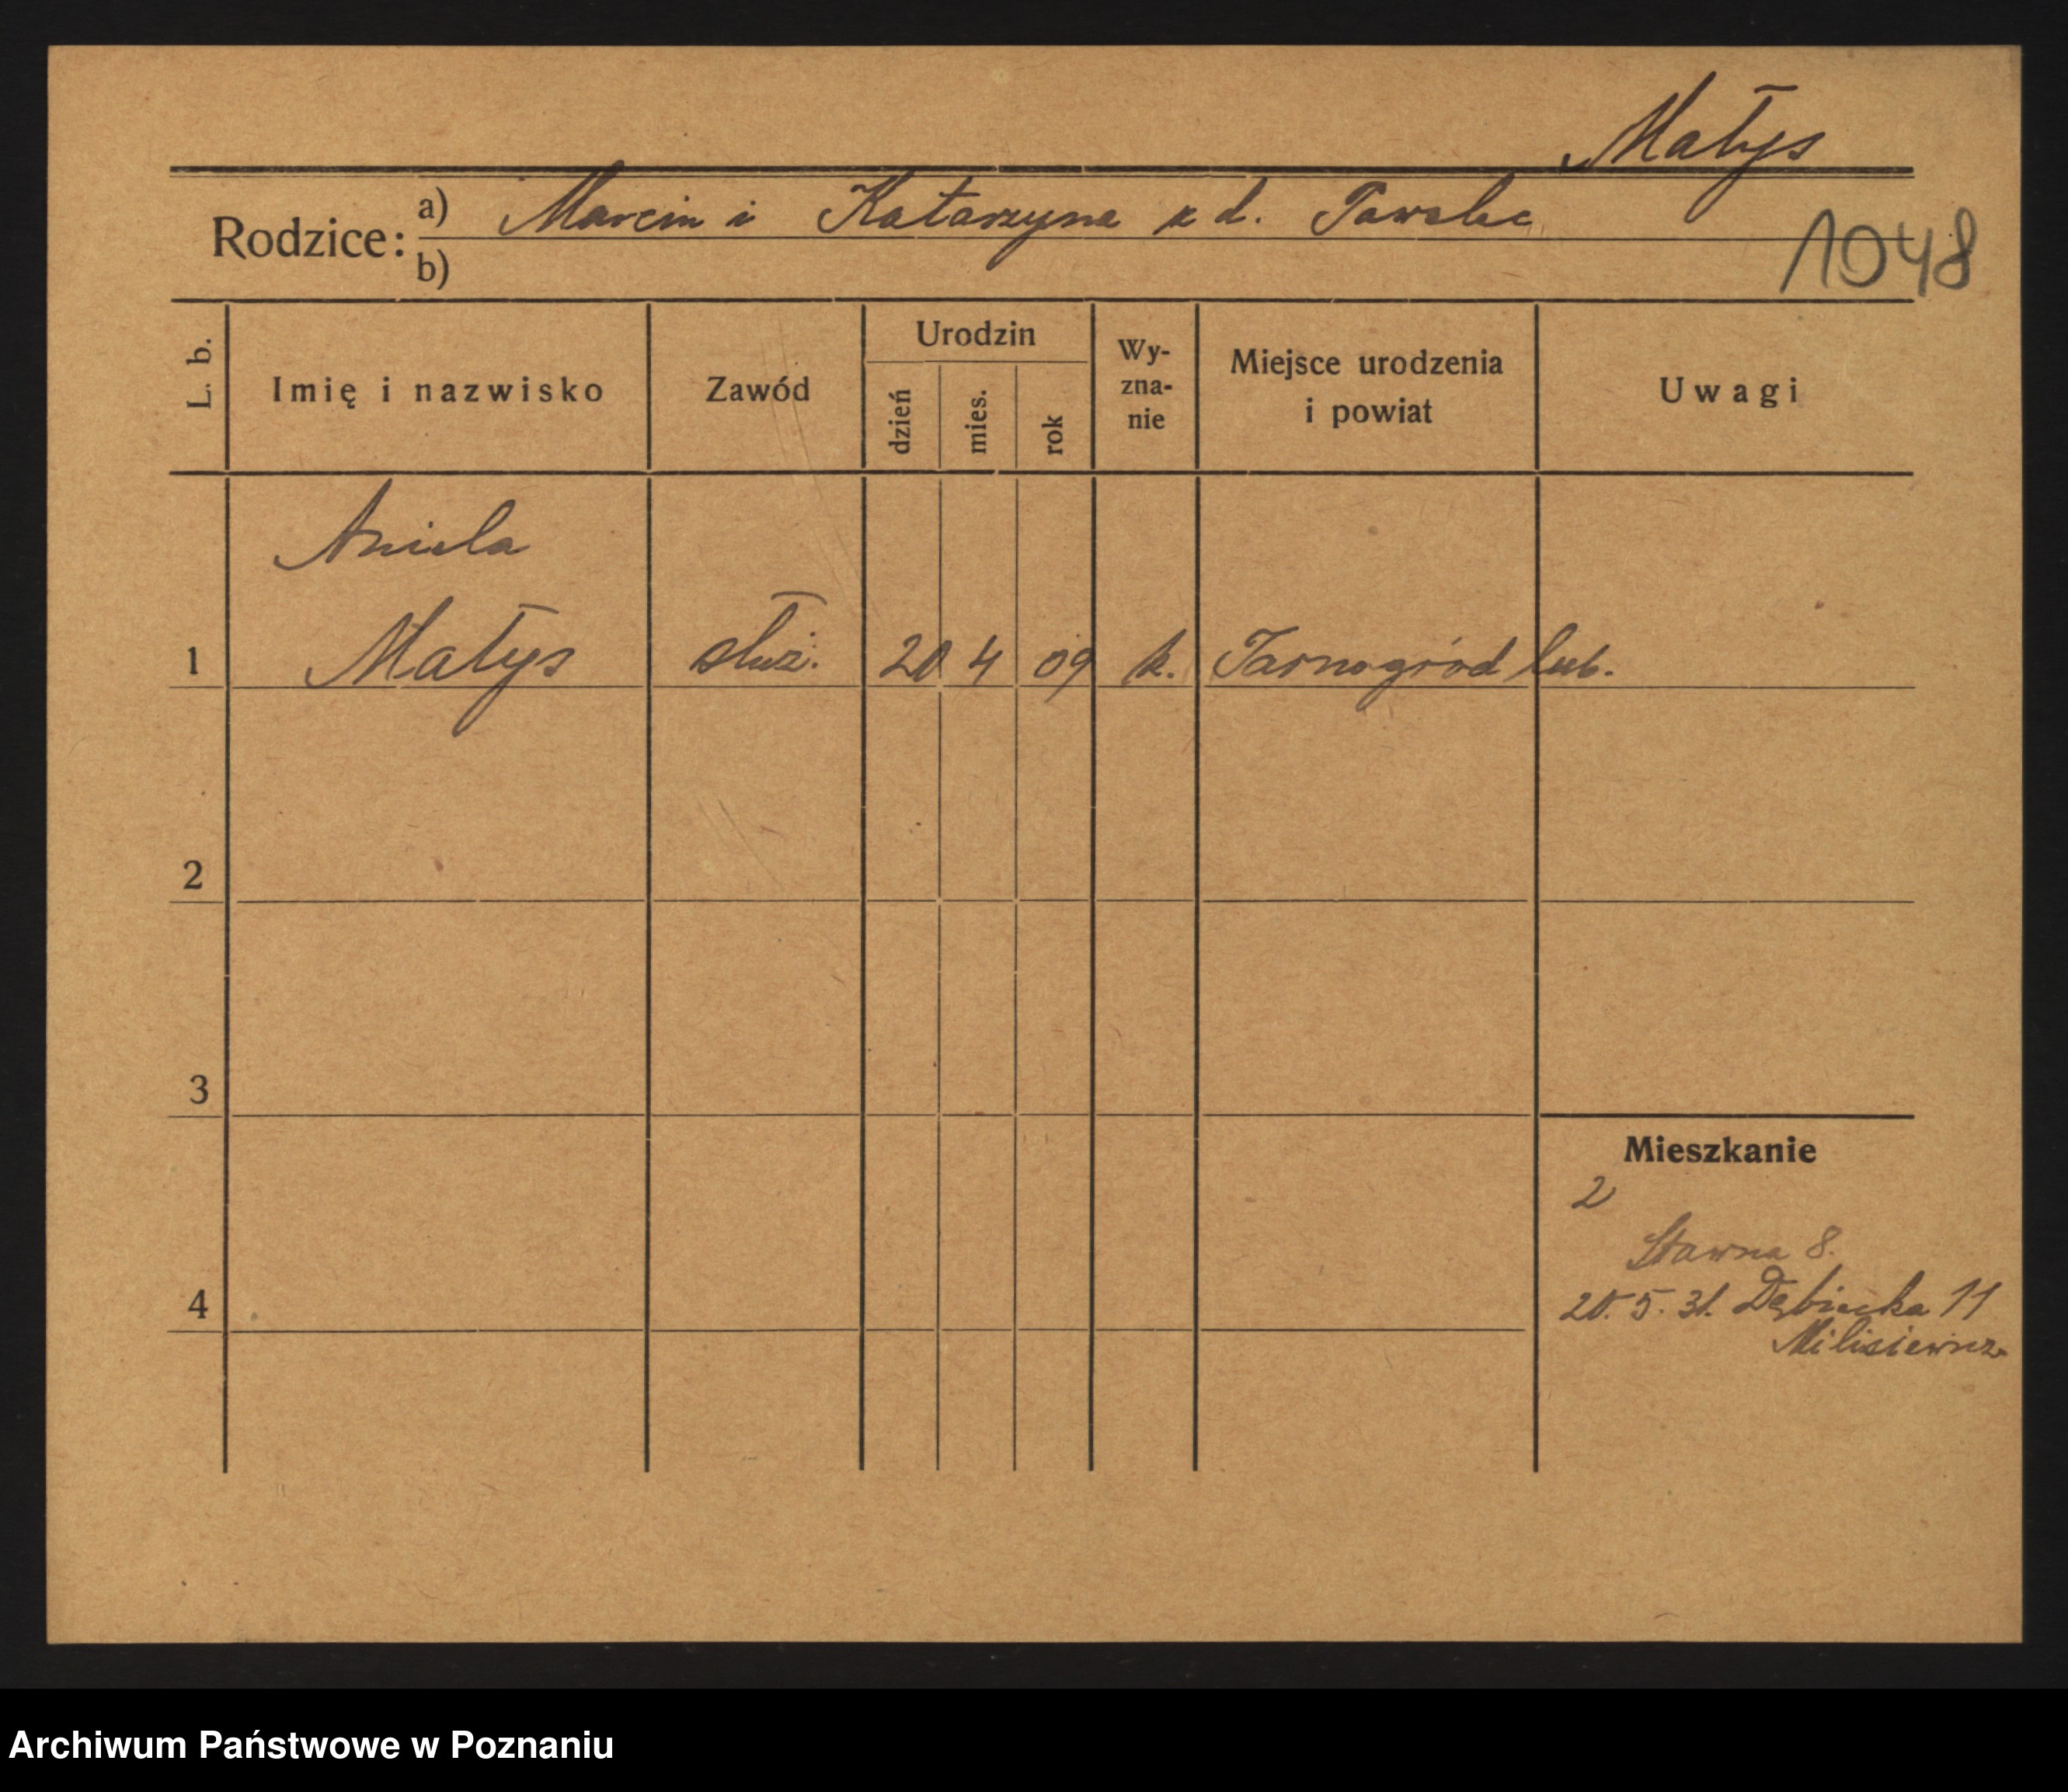 Małys
Rodzice: a) Marcin i Katarzyna z d. Pawelec
b)
1048
L. b. Imię i nazwisko Zawód Urodzin dzień mies. rok Wy-zna-nie Miejsce urodzenia i powiat Uwagi
Aniela
1 Małys służ. 20 4 09 k. Tarnogród lub.
2
3
Mieszkanie
2
Stawna 8.
4
20. 5. 31. Dębiecka 11
Archiwum Państwowe w Poznaniu